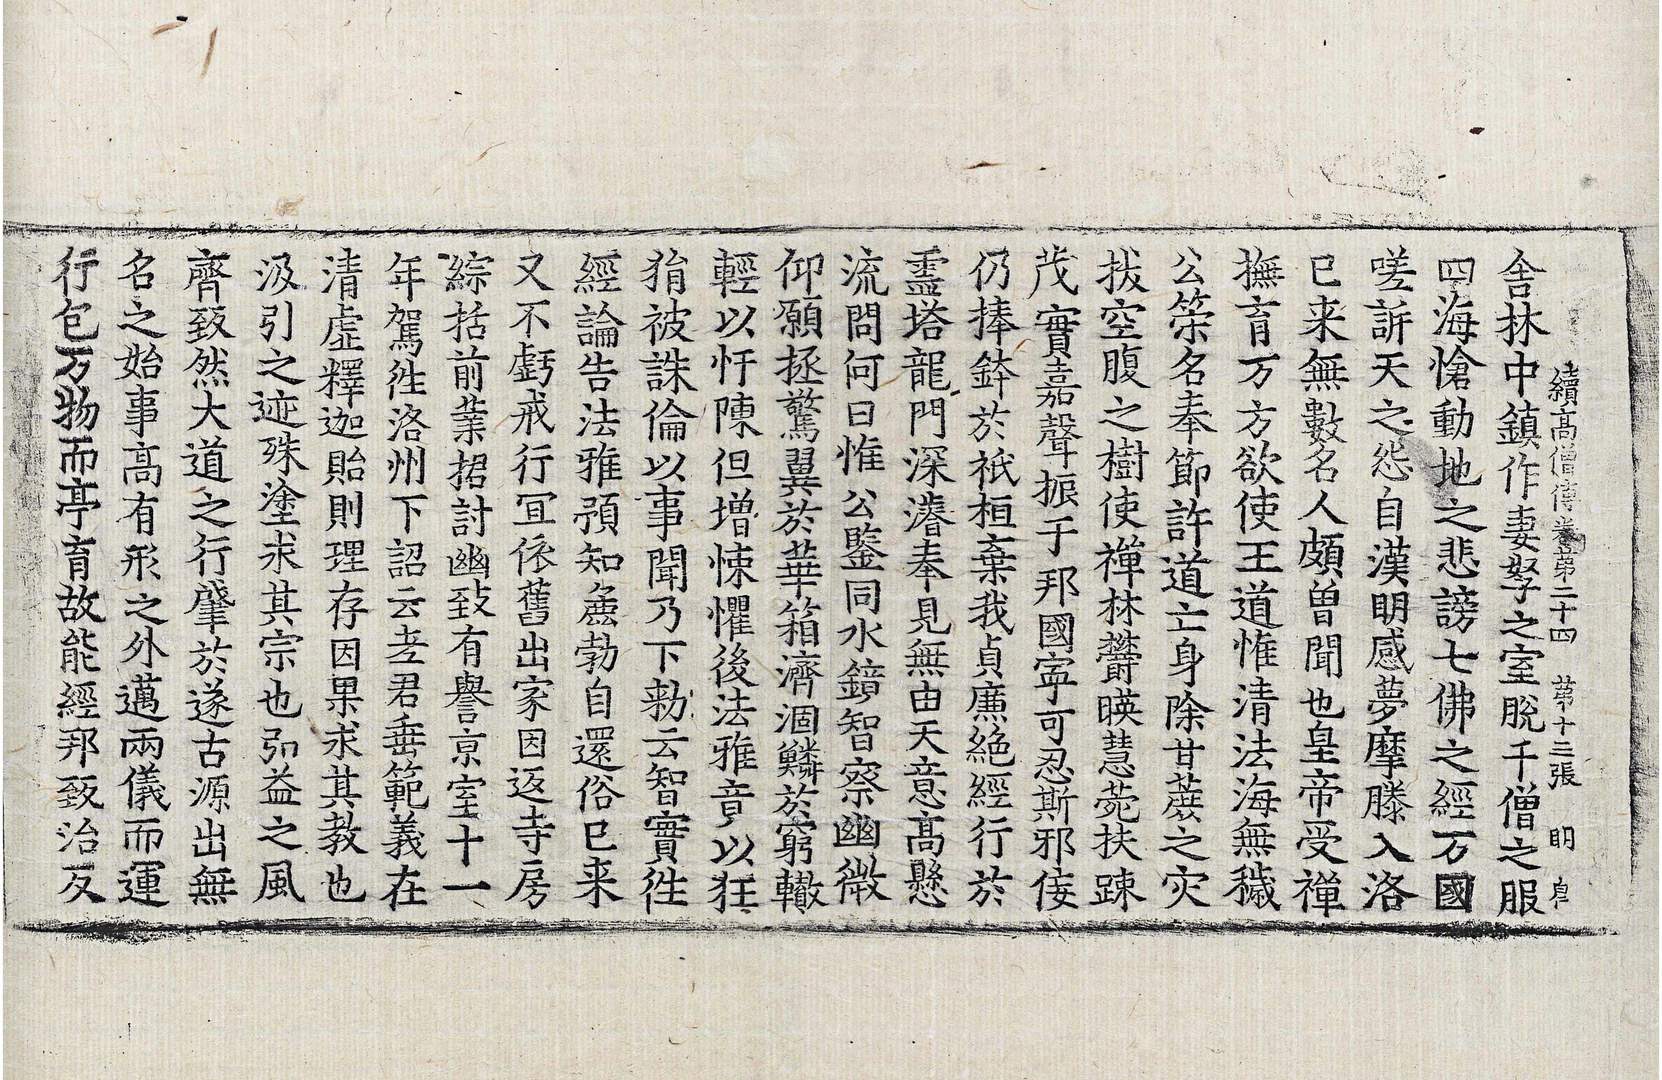 續高僧傳卷第二十四 第十三張 明
舍林中鎮作妻孥之室脫千僧之服
四海愴動地之悲謗七佛之經万國
嗟訴天之怨自漢明感夢摩騰入洛
已来無數名人頗曾聞也皇帝受禪
撫育万方欲使王道惟清法海無穢
公榮名奉節許道亡身除甘蔗之灾
拔空腹之樹使禪林欝暎慧菀扶踈
茂實嘉聲振于邦國寧可忍斯邪佞
仍捧鉢於祇桓棄我貞廉絶經行於
靈塔龍門深濬奉見無由天意高懸
流問何日惟公鑒同水鏡智察幽微
仰願拯驚翼於華箱濟涸鱗於窮轍
輕以忓陳但增悚懼後法雅竟以狂
狷被誅倫以事聞乃下勑云智實往
經論告法雅預知麁勃自還俗已来
又不虧戒行冝依舊出家因返寺房
綜括前業捃討幽致有譽京室十一
年駕往洛州下詔云老君垂範義在
清虚釋迦貽則理存因果求其教也
汲引之迹殊塗求其宗也弘益之風
齊致然大道之行肇於遂古源出無
名之始事高有形之外邁兩儀而運
行包万物而亭育故能經邦致治反